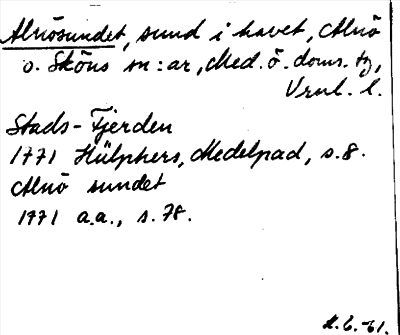 Alnösundet, sund i havet, Alnö
o. Sköns sn:ar, Med. ö. doms. tg,
Vrnl. l.
Stads-Fjerden
1771 Hülphers, Medelpad, s. 8.
Alnö sundet
1771 a.a., s. 78.
6. -61.